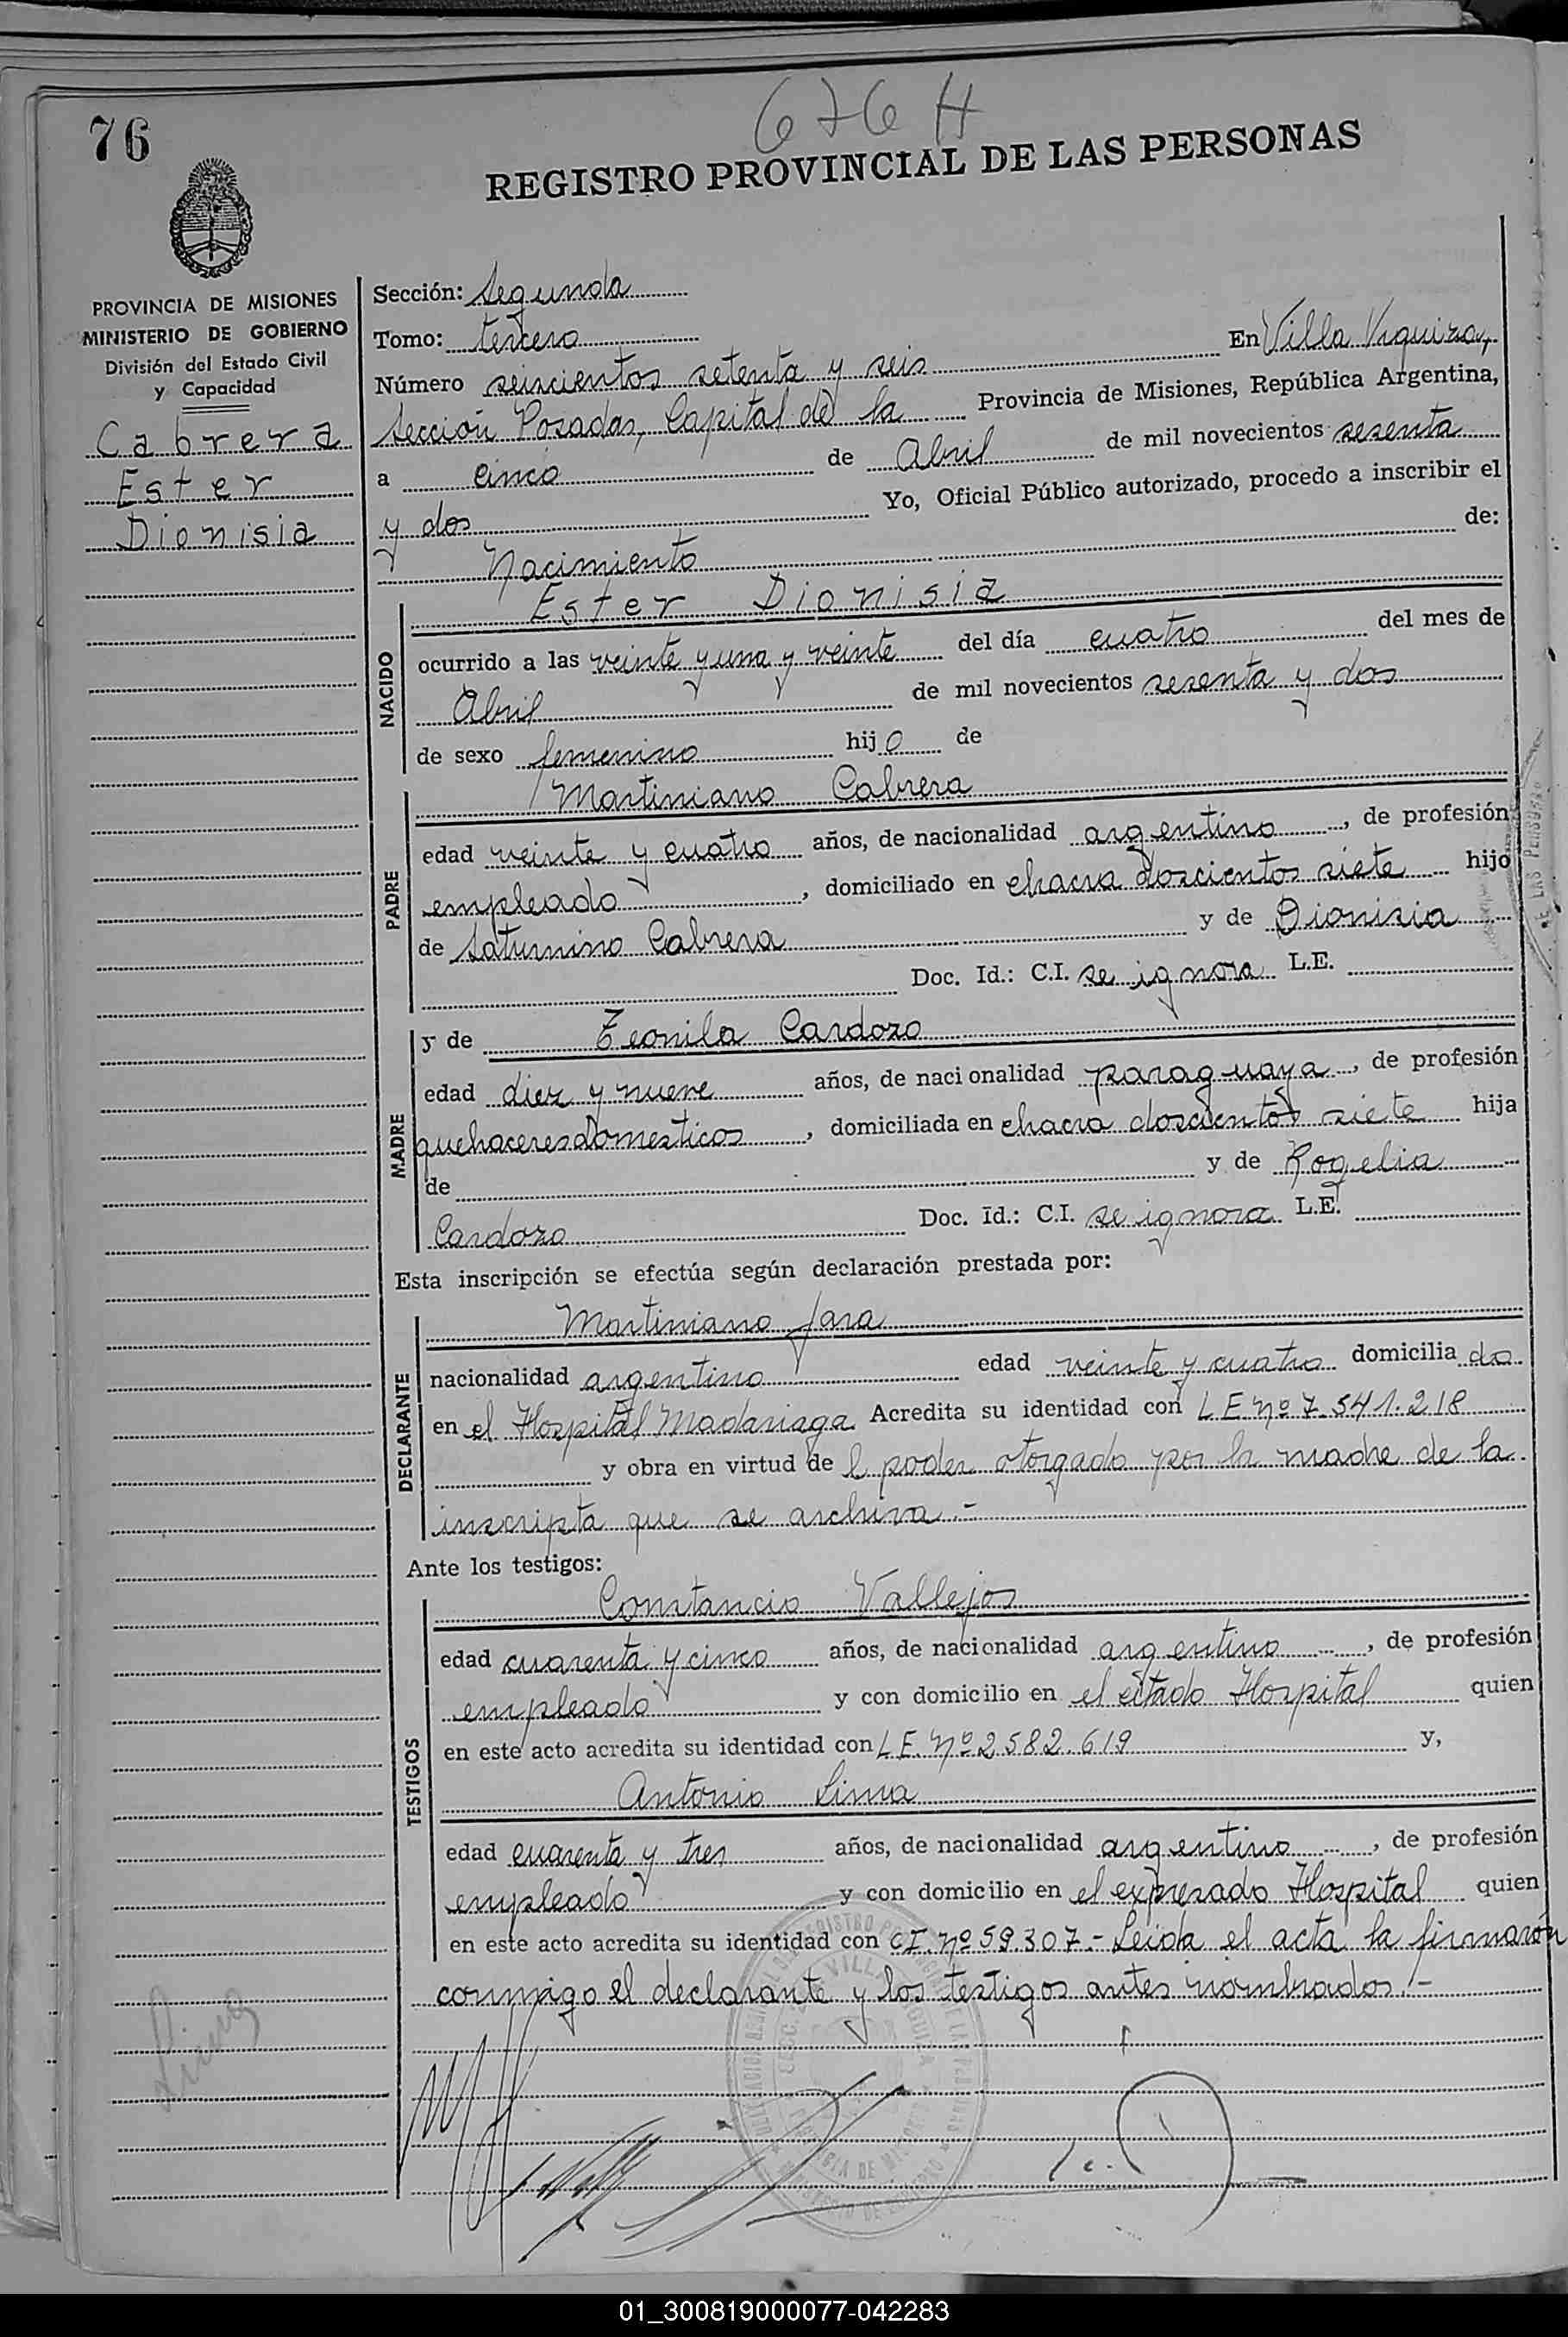 676 H
76
REGISTRO PROVINCIAL DE LAS PERSONAS
PROVINCIA DE MISIONES
MINISTERIO DE GOBIERNO
División del Estado Civil
y Capacidad
Cabrera
Ester
Dionisia
Sección: Segunda
Tomo: tercero
Número seiscientos setenta y seis En Villa Urquiza,
Sección Posadas, Capital de la Provincia de Misiones, República Argentina,
a cinco de Abril de mil novecientos sesenta
y dos Yo, Oficial Público autorizado, procedo a inscribir el
Nacimiento de:
NACIDO
Ester Dionisia
ocurrido a las veinte y una y veinte del día cuatro del mes de
Abril de mil novecientos sesenta y dos
de sexo femenino hijo de
PADRE
Martiniano Cabrera
edad veinte y cuatro años, de nacionalidad argentino, de profesión
empleado, domiciliado en chacra doscientos siete hijo
de Saturnino Cabrera y de Dionisia
Doc. Id.: C.I. se ignora L.E.
MADRE
y de Teonila Cardozo
edad diez y nueve años, de nacionalidad paraguaya, de profesión
quehaceres domesticos, domiciliada en chacra doscientos siete hija
de y de Rogelia
Cardozo Doc. Id.: C.I. se ignora L.E.
Esta inscripción se efectúa según declaración prestada por:
DECLARANTE
Martiniano Jara
nacionalidad argentino edad veinte y cuatro domiciliado
en el Hospital Madariaga Acredita su identidad con L E Nº 7.541.218
y obra en virtud del poder otorgado por la madre de la
inscripta que se archiva.-
Ante los testigos:
TESTIGOS
Constancio Vallejos
edad cuarenta y cinco años, de nacionalidad argentino, de profesión
empleado y con domicilio en el citado Hospital quien
en este acto acredita su identidad con L E. Nº 2582.619 y,
Antonio Lima
edad cuarenta y tres años, de nacionalidad argentino, de profesión
empleado y con domicilio en el expresado Hospital quien
en este acto acredita su identidad con C I. Nº 59.307.- Leida el acta la firmarón
conmigo el declarante y los testigos antes nombrados.-
Lima
01_300819000077-042283